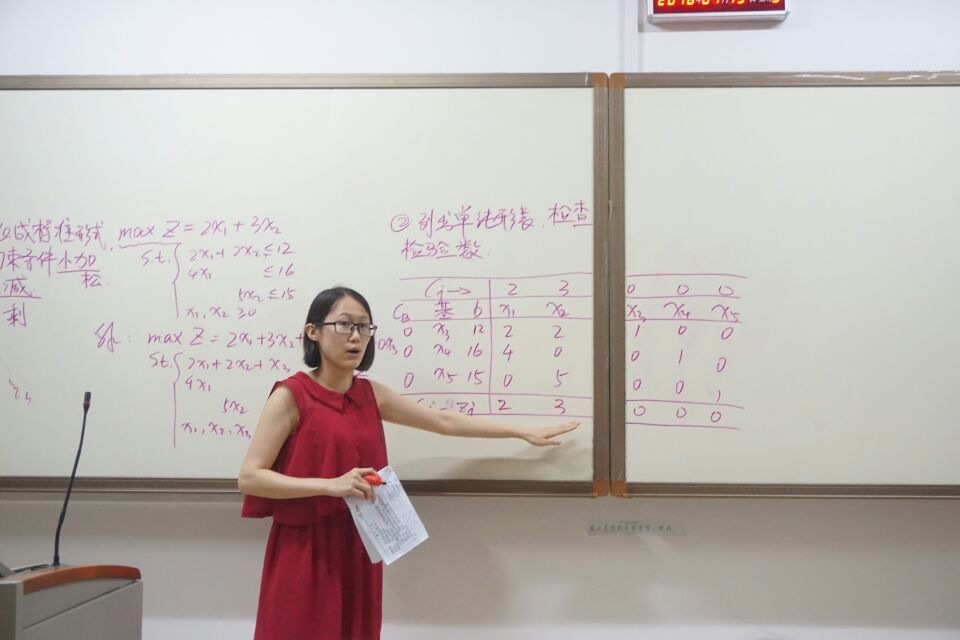 成标准形式
max Z = 2x₁ + 3x₂
s.t. 2x₁ + 2x₂ ≤ 12
4x₁ ≤ 16
5x₂ ≤ 15
x₁, x₂ ≥ 0
条件 小加
松
减
剩
解: max Z = 2x₁ + 3x₂ +
0x₃
s.t. 2x₁ + 2x₂ + x₃
4x₁
5x₂
x₁, x₂, x₃
② 列出单纯形表, 检查
检验数.
Cj → 2 3 0 0 0
C_B 基 b x₁ x₂ x₃ x₄ x₅
0 x₃ 12 2 2 1 0 0
0 x₄ 16 4 0 0 1 0
0 x₅ 15 0 5 0 0 1
Cj - Zj 2 3 0 0 0